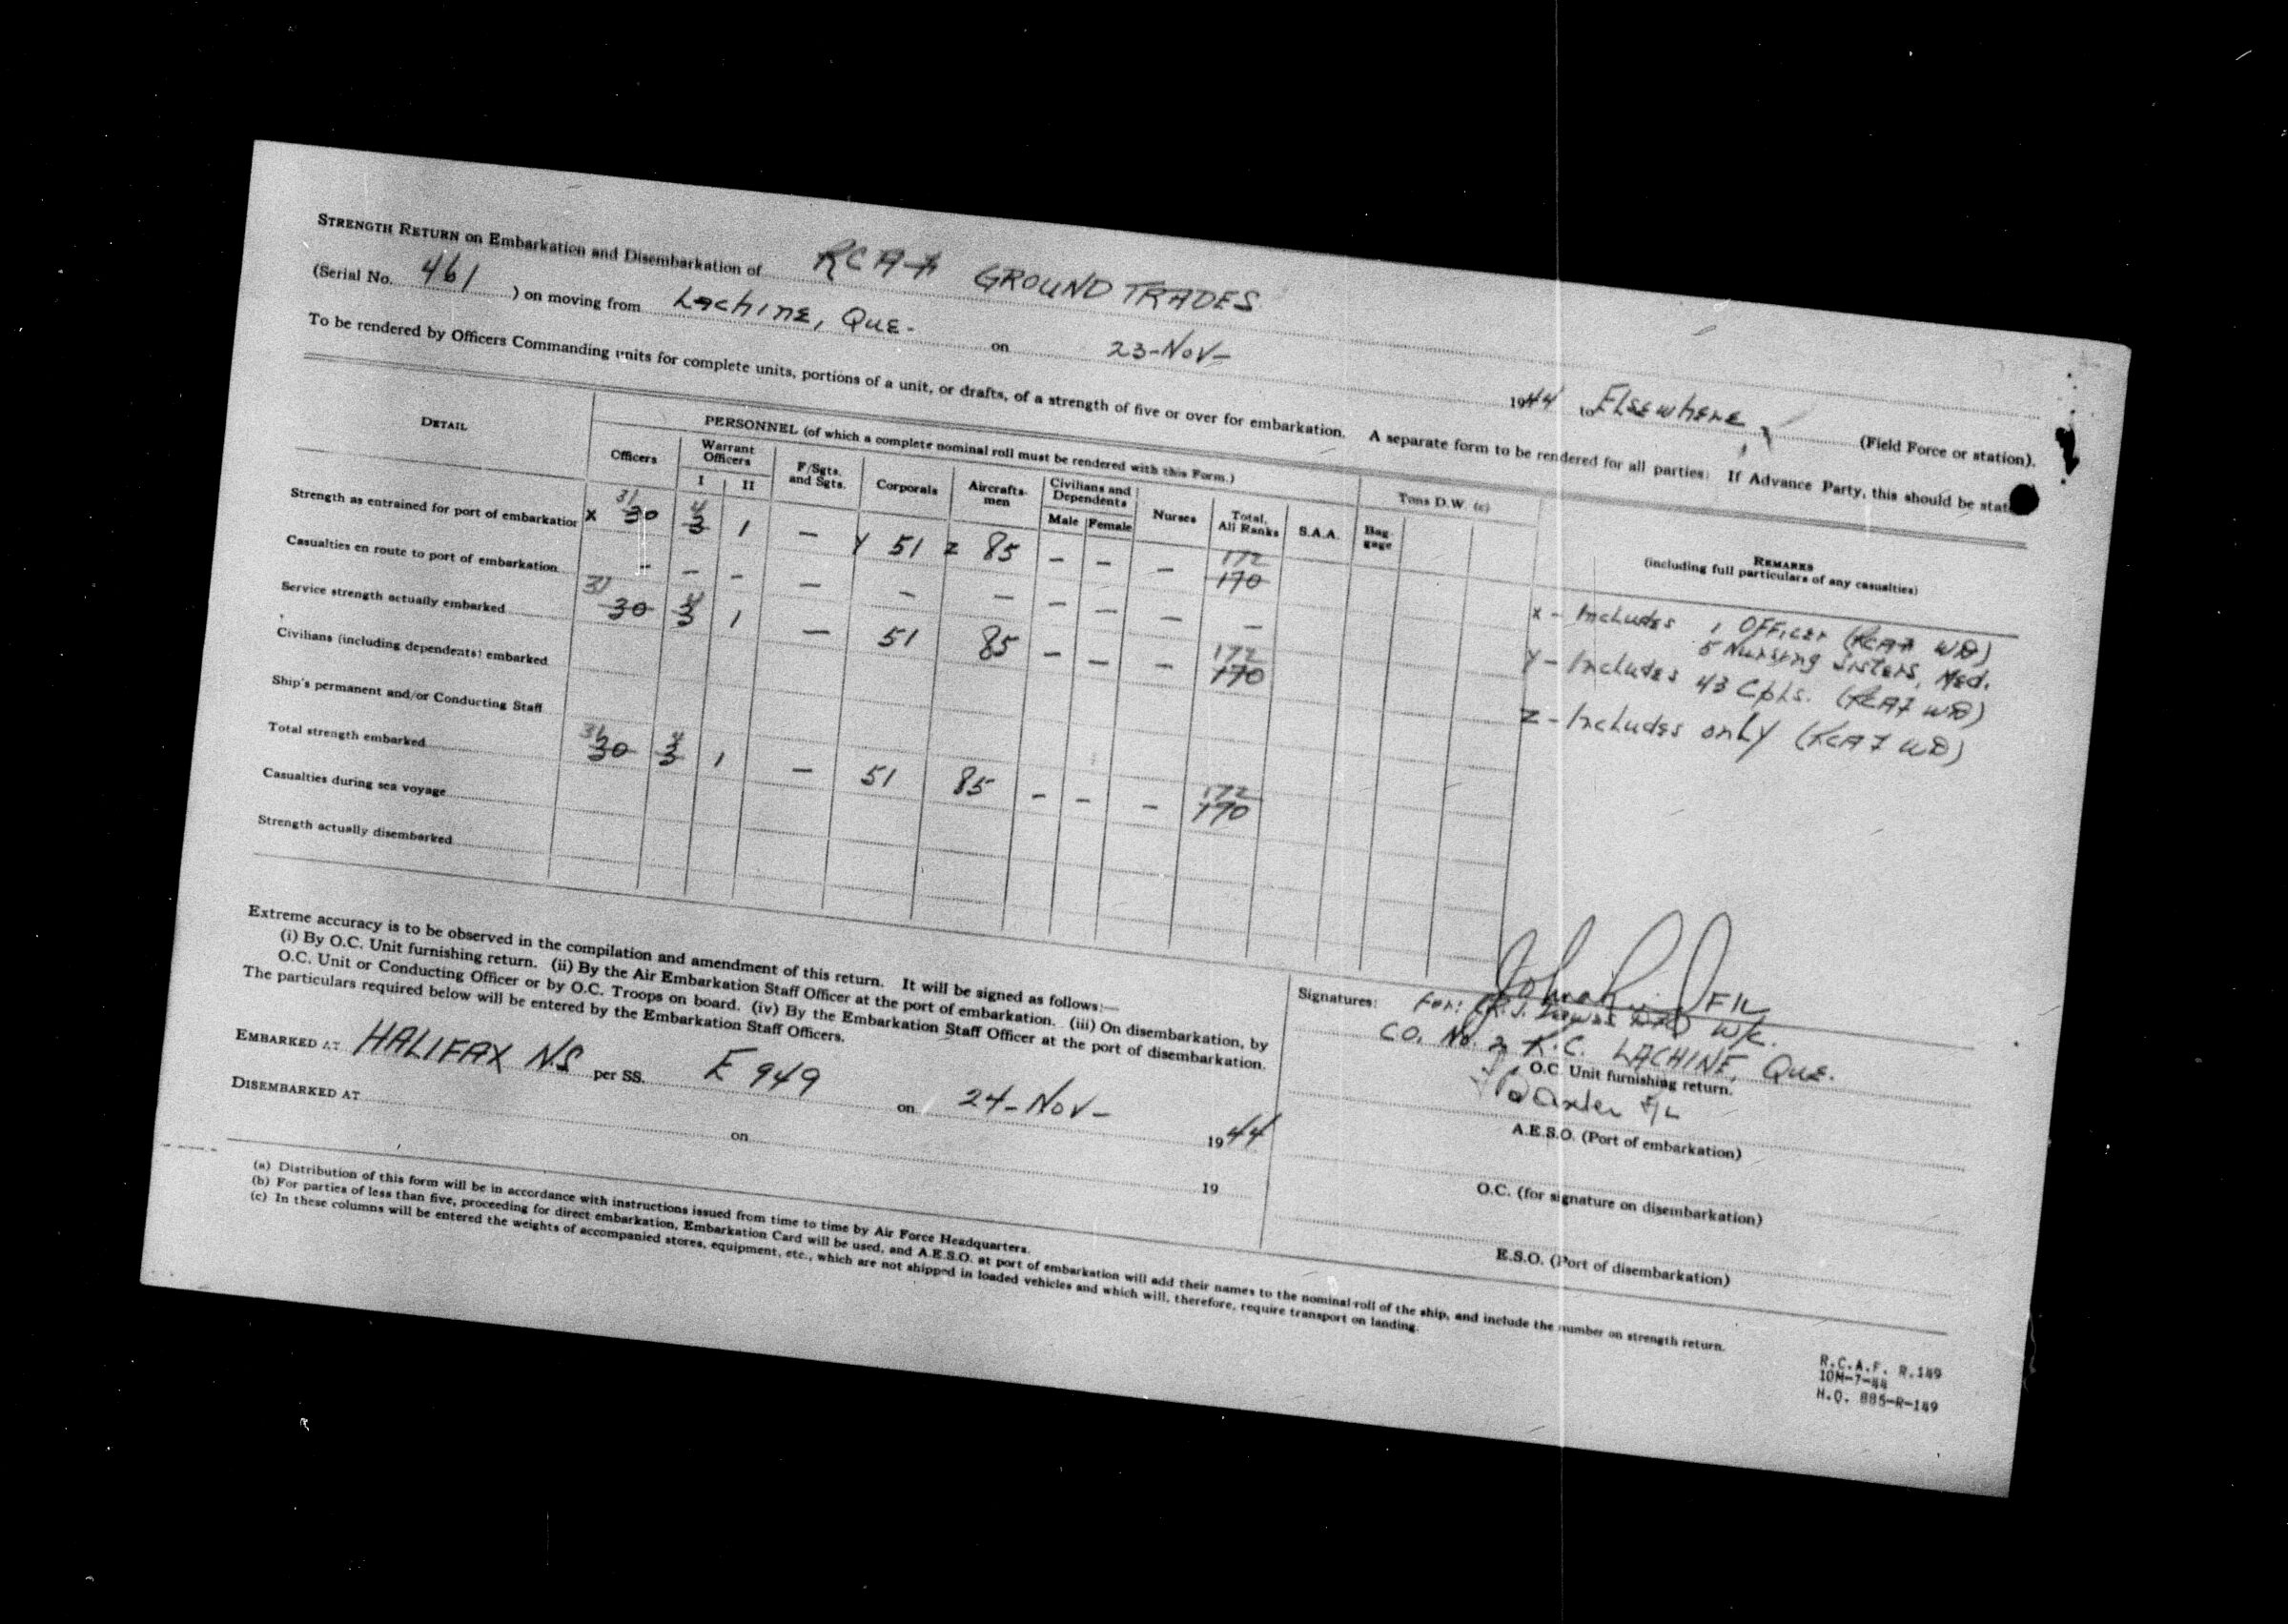 STRENGTH RETURN on Embarkation and Disembarkation of RCAF GROUND TRADES
(Serial No. 461 ) on moving from Lachine, Que. on 23-Nov- 1944 to Elsewhere (Field Force or station).
To be rendered by Officers Commanding units for complete units, portions of a unit, or drafts, of a strength of five or over for embarkation. A separate form to be rendered for all parties: If Advance Party, this should be
DETAIL
PERSONNEL (of which a complete nominal roll must be rendered with this Form.)
Officers
Warrant Officers
I II
F/Sgts. and Sgts.
Corporals
Aircrafts-men
Civilians and Dependents
Male Female
Nurses
Total, All Ranks
S.A.A.
Tons D.W. (c)
Bag-gage
REMARKS
(including full particulars of any casualties)
Strength as entrained for port of embarkation X 31 30 4 3 1 – Y 51 Z 85 – – – 172 170
Casualties en route to port of embarkation – – – – – – – – – –
Service strength actually embarked 31 30 4 3 1 – 51 85 – – – 172 170
Civilians (including dependents) embarked
Ship's permanent and/or Conducting Staff
Total strength embarked 31 30 4 3 1 – 51 85 – – – 172 170
Casualties during sea voyage
Strength actually disembarked
X – Includes 1 Officer (RCAF WD)
5 Nursing Sisters, Med.
Y – Includes 43 Cpls. (RCAF WD)
Z – Includes only (RCAF WD)
Extreme accuracy is to be observed in the compilation and amendment of this return. It will be signed as follows:—
(i) By O.C. Unit furnishing return. (ii) By the Air Embarkation Staff Officer at the port of embarkation. (iii) On disembarkation, by
O.C. Unit or Conducting Officer or by O.C. Troops on board. (iv) By the Embarkation Staff Officer at the port of disembarkation.
The particulars required below will be entered by the Embarkation Staff Officers.
EMBARKED AT HALIFAX N.S per SS. E 949 on 24-Nov- 1944
DISEMBARKED AT on 19
Signatures:
F/L
For: W/C.
CO. No. 2 LACHINE, Que.
O.C. Unit furnishing return.
F/L
A.E.S.O. (Port of embarkation)
O.C. (for signature on disembarkation)
E.S.O. (Port of disembarkation)
(a) Distribution of this form will be in accordance with instructions issued from time to time by Air Force Headquarters.
(b) For parties of less than five, proceeding for direct embarkation, Embarkation Card will be used, and A.E.S.O. at port of embarkation will add their names to the nominal roll of the ship, and include the number on strength return.
(c) In these columns will be entered the weights of accompanied stores, equipment, etc., which are not shipped in loaded vehicles and which will, therefore, require transport on landing.
R.C.A.F. R.149
10M-7-44
H.Q. 885-R-149